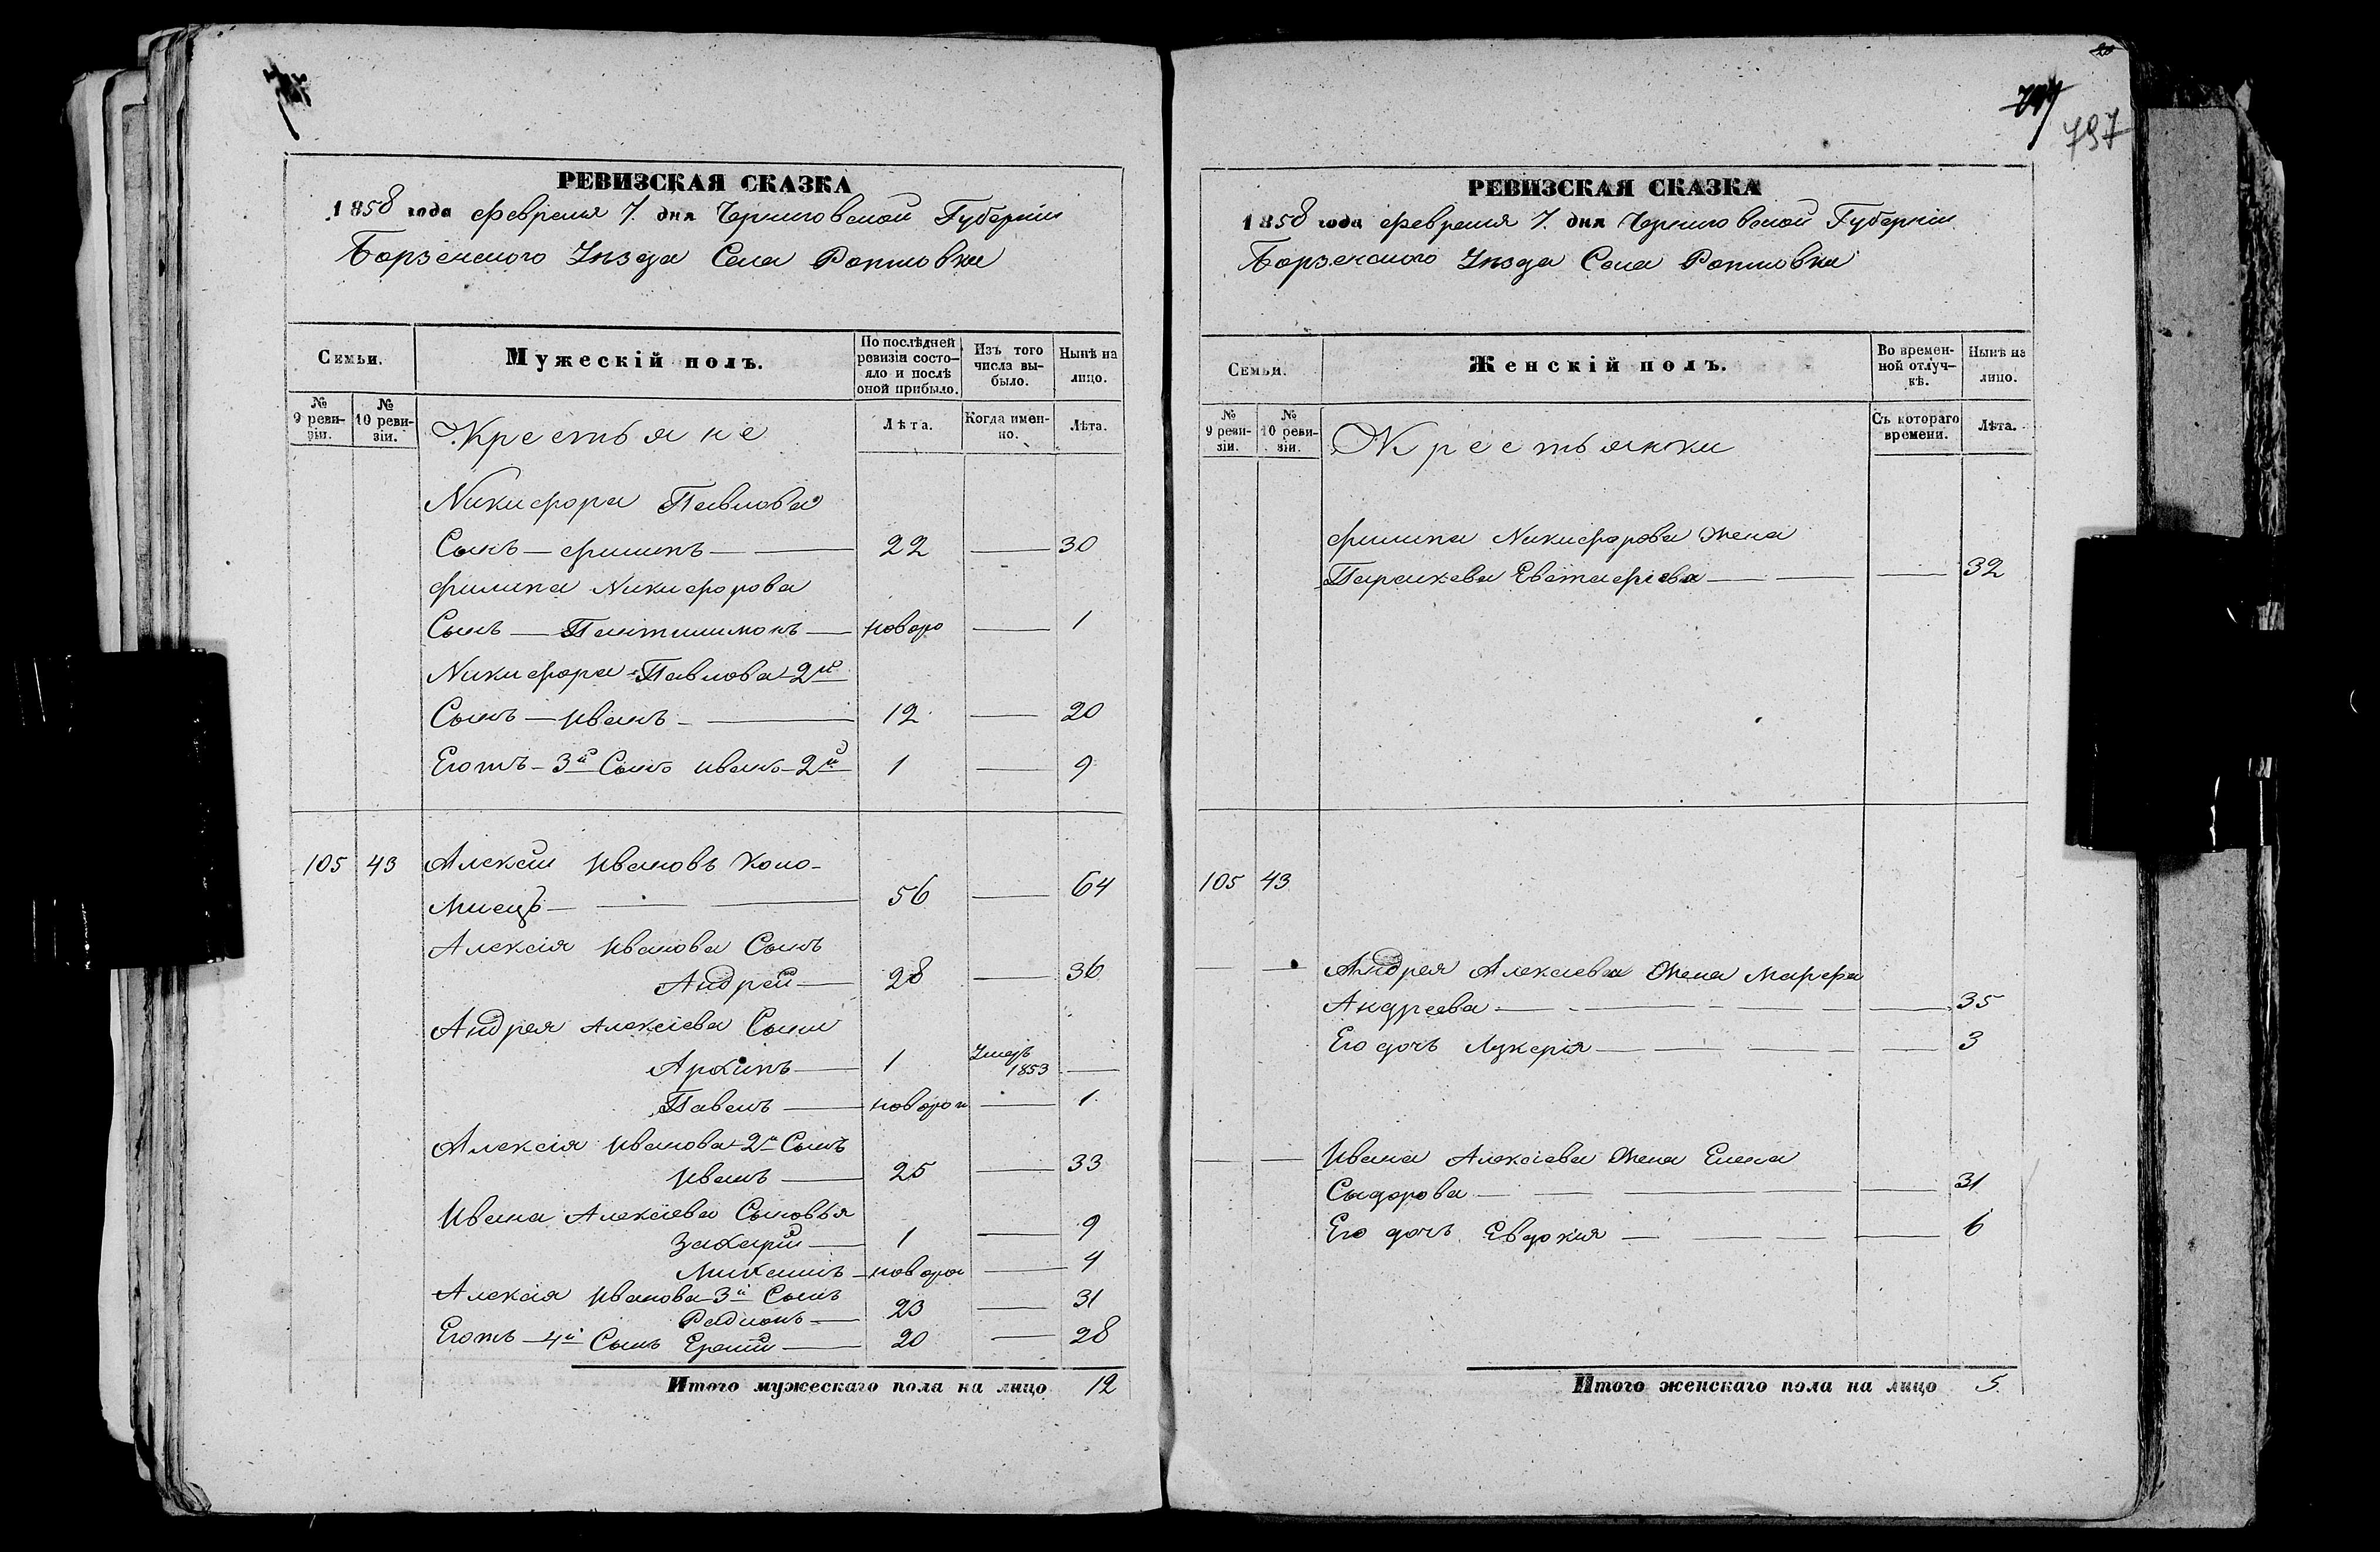 РЕВИЗСКАЯ СКАЗКА
1858 года февраля 7. дня Черниговской Губерніи
Борзенского Уѣзда Села
Семьи.
Мужескій полъ.
По послѣдней ревизіи состояло и послѣ оной прибыло.
Изъ того числа выбыло.
Нынѣ на лицо.
№ 9 ревизіи.
№ 10 ревизіи.
Крестьяне
Лѣта.
Когда именно.
Лѣта.
Никифора Павлова
Сынъ — филипъ — 22 — 30
филипа Никифорова
Сынъ — Пантилимонъ — новоро — 1
Никифора Павлова 2й
Сынъ — Иванъ — 12 — 20
Егожъ — 3й Сынъ Иванъ 2й 1 — 9
105 43 Алексѣй Ивановъ Коло-
миецъ — 56 — 64
Алексія Иванова Сынъ
Андрей — 28 — 36
Андрея Алексіева Сыны
Архипъ — 1 Умеръ 1853 —
Павелъ — новорож — 1
Алексія Иванова 2й Сынъ
Иванъ — 25 — 33
Ивана Алексіева Сыновья
Захарій — 1 — 9
Михаилъ — новорож — 4
Алексія Иванова 3й Сынъ
Радионъ — 23 — 31
Егожъ — 4й Сынъ — 20 — 28
Итого мужескаго пола на лицо 12
20
797
РЕВИЗСКАЯ СКАЗКА
1858 года февраля 7. дня Черниговской Губерніи
Борзенского Уѣзда Села
Семьи.
Женскій полъ.
Во временной отлучкѣ.
Нынѣ на лицо.
№ 9 ревизіи.
№ 10 ревизіи.
Крестьянки
Съ котораго времени.
Лѣта.
филипа Никифорова Жена
Параскева Евстафіева — — 32
105 43
— — Андрея Алексіева Жена Марфа
Андреева — — 35
Его дочь Лукерія — — 3
— — Ивана Алексіева Жена Елена
Сыдорова — — 31
Его дочь Евдокия — — 6
Итого женскаго пола на лицо 5.